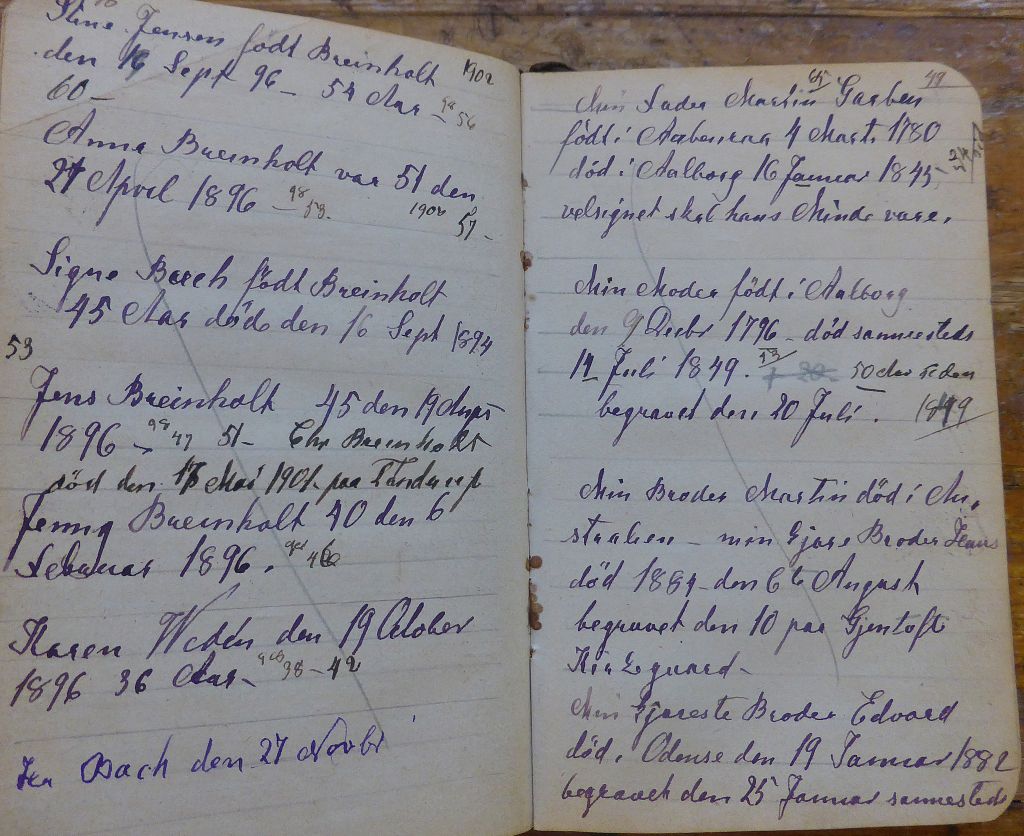 Stine Jensen födt Breinholt 1902
den 16 Sept 96 – 54 Aar – 98 56
60 –
Anna Breinholt var 51 den
27 April 1896 – 98 53. 1902 57 –
Signe Bach födt Breinholt
45 Aar döde den 16 Sept 1894
53
Jens Breinholt 45 den 19 Augs
1896 – 98 47 51 – Chr Breinholt
död den 17 Mai 1901 paa Tandrup
Jenny Breinholt 40 den 6
Februar 1896. 46
Karen Wedén den 19 October
1896 36 Aar – 38 – 42
Bach den 27 Novbr
49
65
Min Fader Martin Garben
födt i Aabenraa 4 Marts 1780
död i Aalborg 16 Januar 1845
velsignet skal hans Minde være.
Min Moder födt i Aalborg
den 9 Decbr 1796 – död sammesteds
14 Juli 1849. 53 50 Aar siden
begravet den 20 Juli. 1849
Min Broder Martin död i Au,
stralien – min Kjære Broder Hans
död 1884 – den 6te August
begravet den 10 paa Gjentofte
Kirkegaard –
Min Kjæreste Broder Edvard
död i Odense den 19 Januar 1882
begravet den 25 Januar sammesteds